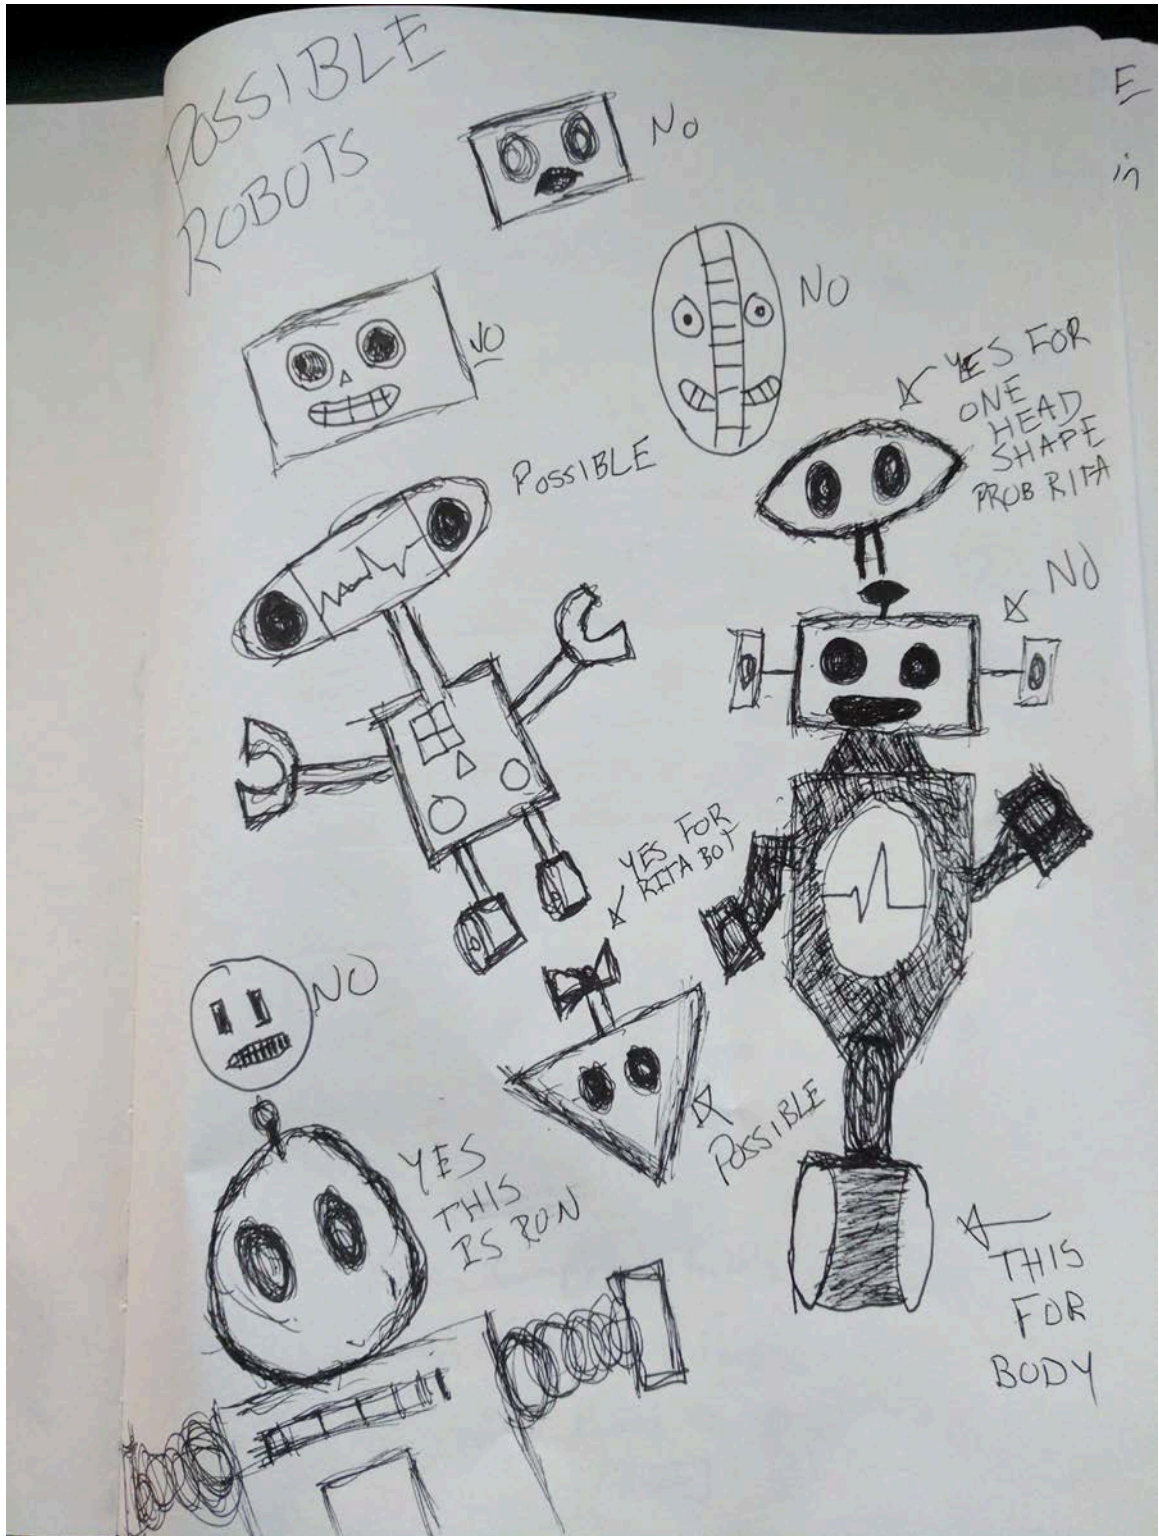 POSSIBLE
ROBOTS
E
in
No
NO
NO
YES FOR
ONE
HEAD
SHAPE
PROB RITA
POSSIBLE
NO
YES FOR
RITA BOT
NO
POSSIBLE
YES
THIS
IS RON
THIS
FOR
BODY